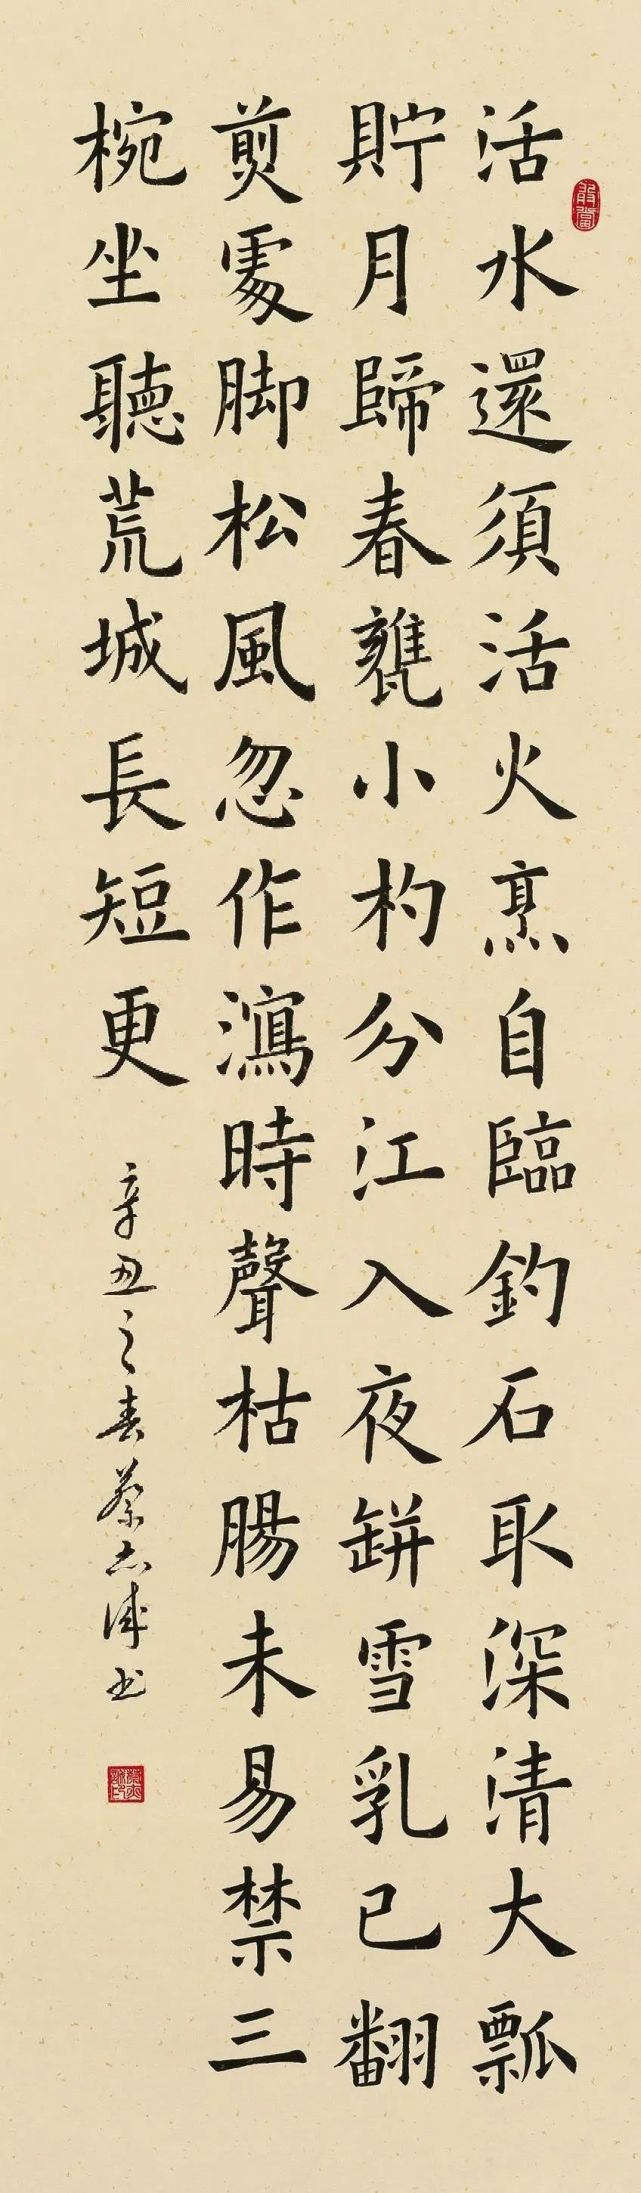 活水還須活火烹自臨釣石取深清大瓢
貯月歸春甕小杓分江入夜缾雪乳已翻
煎處脚松風忽作瀉時聲枯腸未易禁三
椀坐聽荒城長短更
辛丑之春蔡志誠書